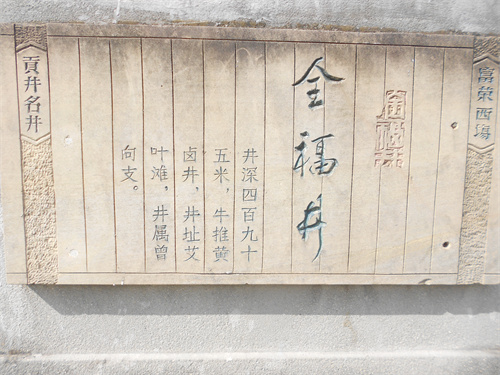 富榮西場
全福井
井深四百九十
五米，牛推黄
卤井，井址艾
叶滩，井属曾
向支。
貢井名井